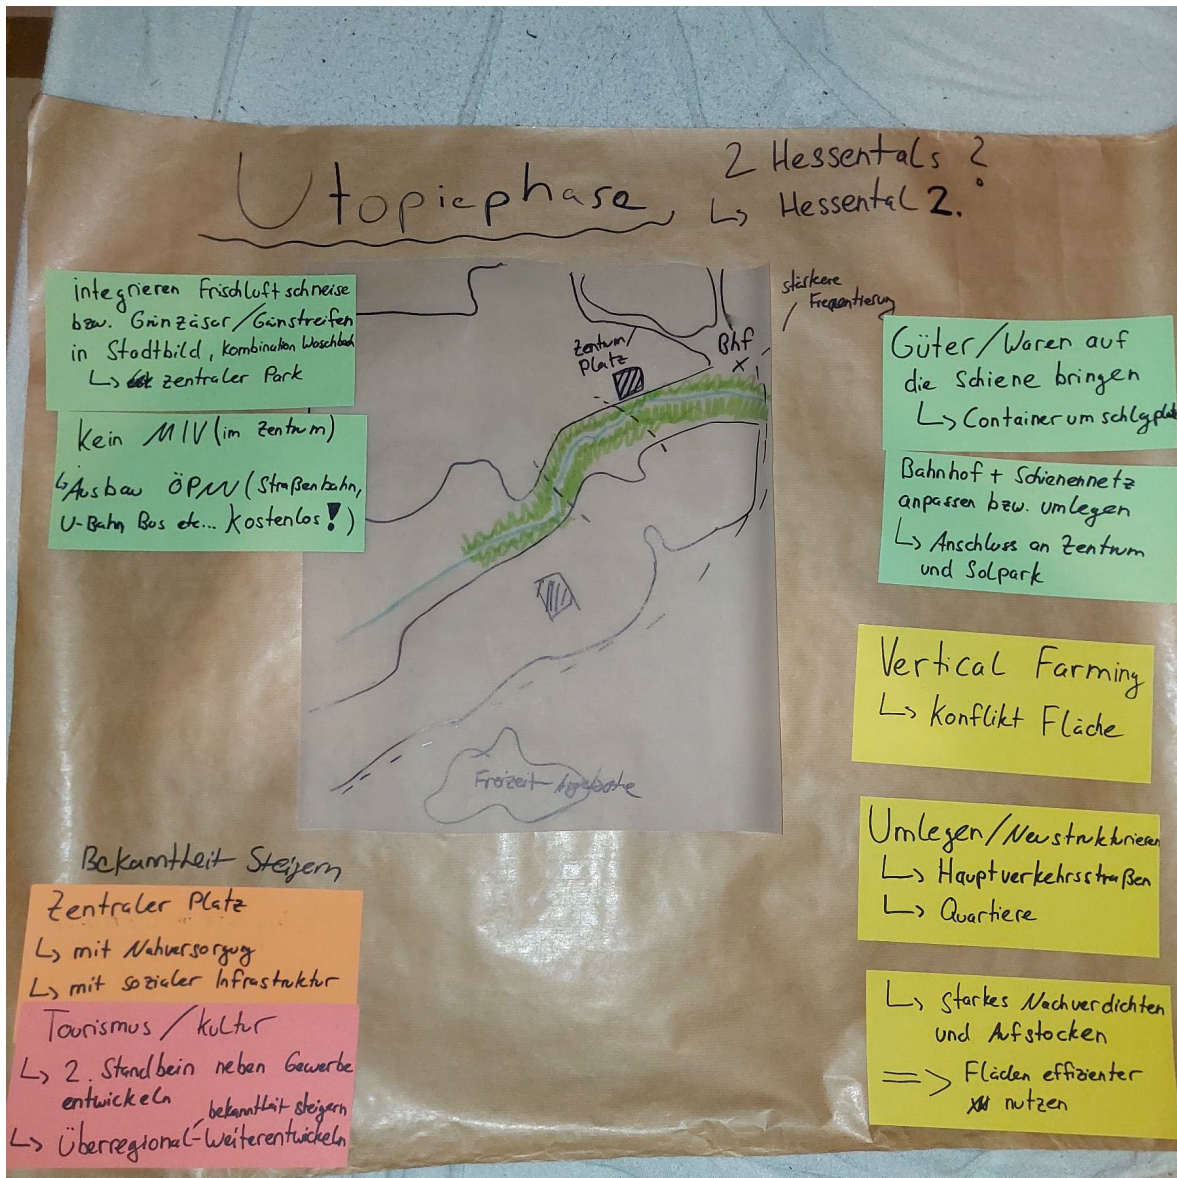 Utopiephase
2 Hessentals ?
↳ Hessental 2.
integrieren Frischluftschneise
bzw. Grünzäsur/Grünstreifen
in Stadtbild, Kombination Waschbach
↳ zentraler Park
Kein MIV (im Zentrum)
↳ Ausbau ÖPNV (Straßenbahn,
U-Bahn Bus etc... kostenlos!)
Zentum/
Platz
Bhf
Freizeit-Angebote
stärkere
Frequentierung
Güter/Waren auf
die Schiene bringen
↳ Containerumschlagplatz
Bahnhof + Schienennetz
anpassen bzw. umlegen
↳ Anschluss an Zentrum
und Solpark
Vertical Farming
↳ Konflikt Fläche
Umlegen/Neustrukturieren
↳ Hauptverkehrsstraßen
↳ Quartiere
↳ starkes Nachverdichten
und Aufstocken
=> Flächen effizienter
nutzen
Bekanntheit Steigern
Zentraler Platz
↳ mit Nahversorgug
↳ mit sozialer Infrastruktur
Tourismus/Kultur
↳ 2. Standbein neben Gewerbe
entwickeln
bekanntheit steigern
↳ Überregional-Weiterentwickeln